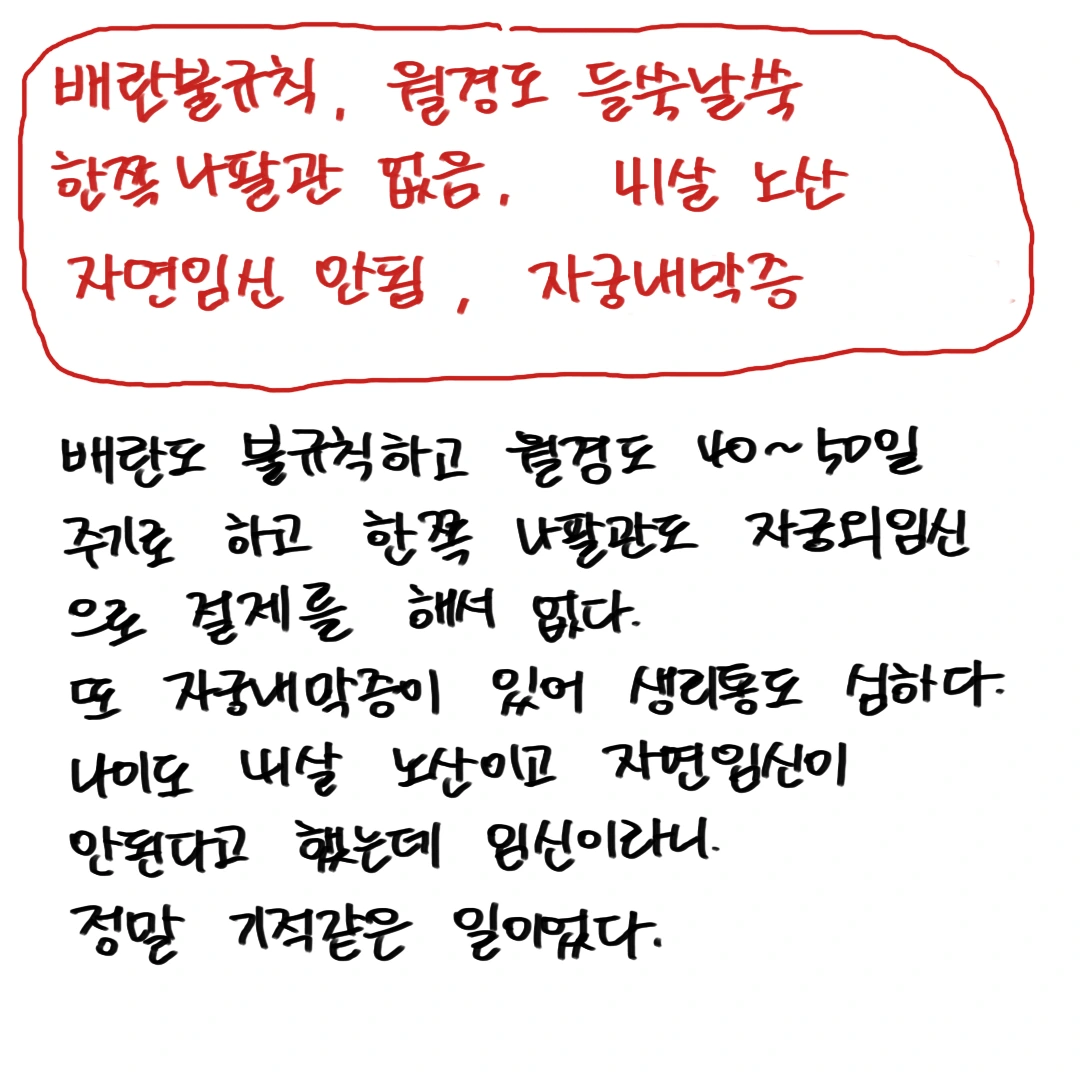 배란불규칙, 월경도 들쑥날쑥
한쪽나팔관 없음, 내살 노산
자연임신 안됨, 자궁내막증
배란도 불규칙하고 월경도 40~50일
주기로 하고 한쪽 나팔관도 자궁외임신
으로 결제를 해서 없다.
또 자궁내막증이 있어 생리통도 심하다.
나이도 내살 노산이고 자연임신이
안된다고 했는데 임신이라니.
정말 기적같은 일이었다.